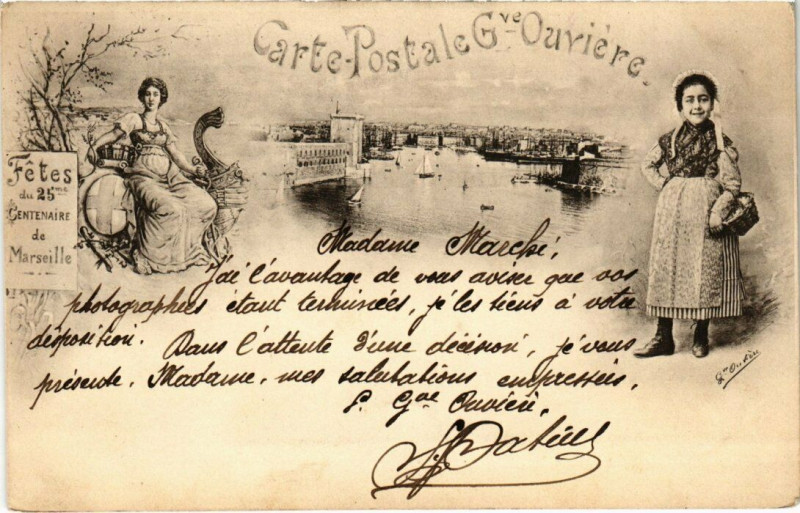 Carte-Postale Gve Ouvière.
Fêtes
du 25me
CENTENAIRE
de
Marseille
Madame Marché,
J'ai l'avantage de vous aviser que vos
photographies étant terminées, je les tiens à votre
disposition. Dans l'attente d'une décision, je vous
présente, Madame, mes salutations empressées,
P. Gve Ouvière,
Gve Ouvière